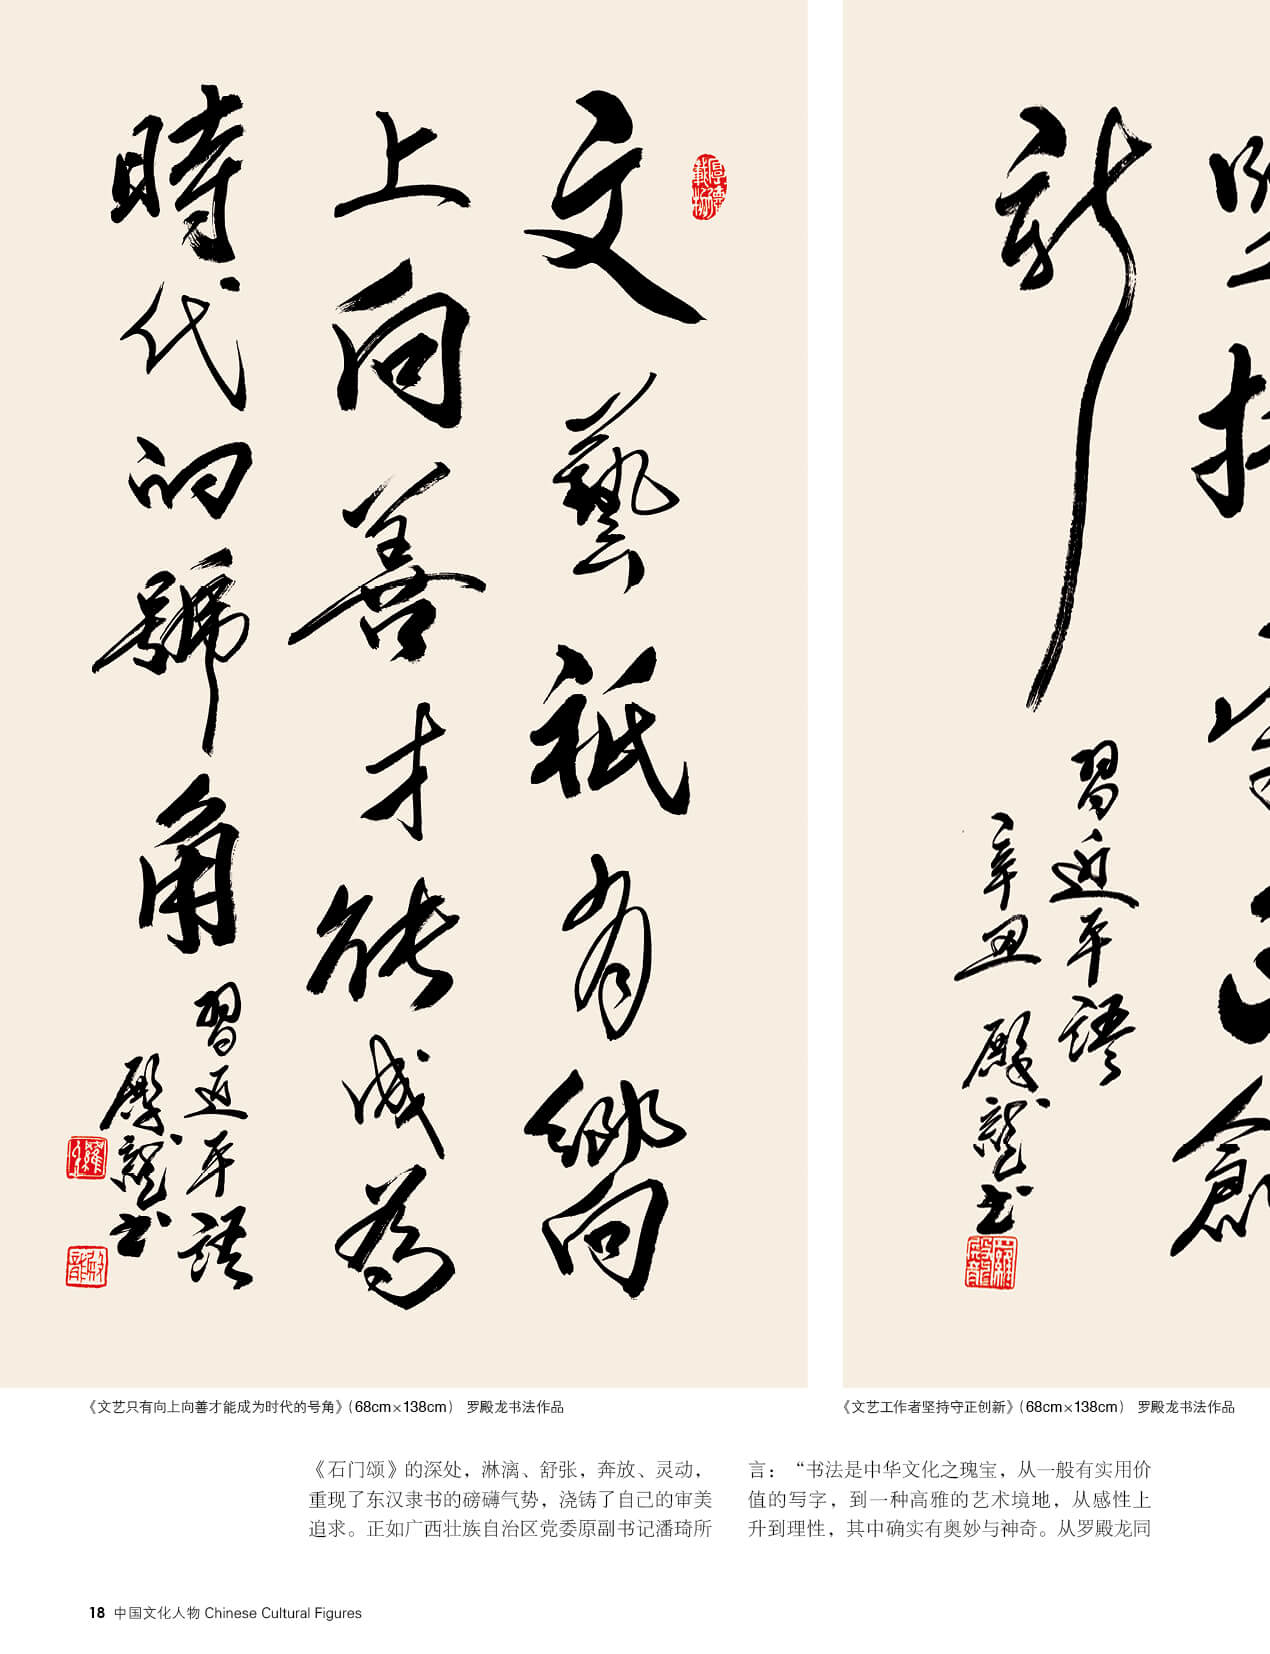 厚德載物
文藝祇有嚮
上向善才能成為
時代的號角
習近平語
殿龍書
堅持守正創
新
習近平語
辛丑 殿龍書
羅殿龍
《文艺只有向上向善才能成为时代的号角》（68cm×138cm） 罗殿龙书法作品
《文艺工作者坚持守正创新》（68cm×138cm） 罗殿龙书法作品
《石门颂》的深处，淋漓、舒张，奔放、灵动，
重现了东汉隶书的磅礴气势，浇铸了自己的审美
追求。正如广西壮族自治区党委原副书记潘琦所
言：“书法是中华文化之瑰宝，从一般有实用价
值的写字，到一种高雅的艺术境地，从感性上
升到理性，其中确实有奥妙与神奇。从罗殿龙同
18 中国文化人物 Chinese Cultural Figures